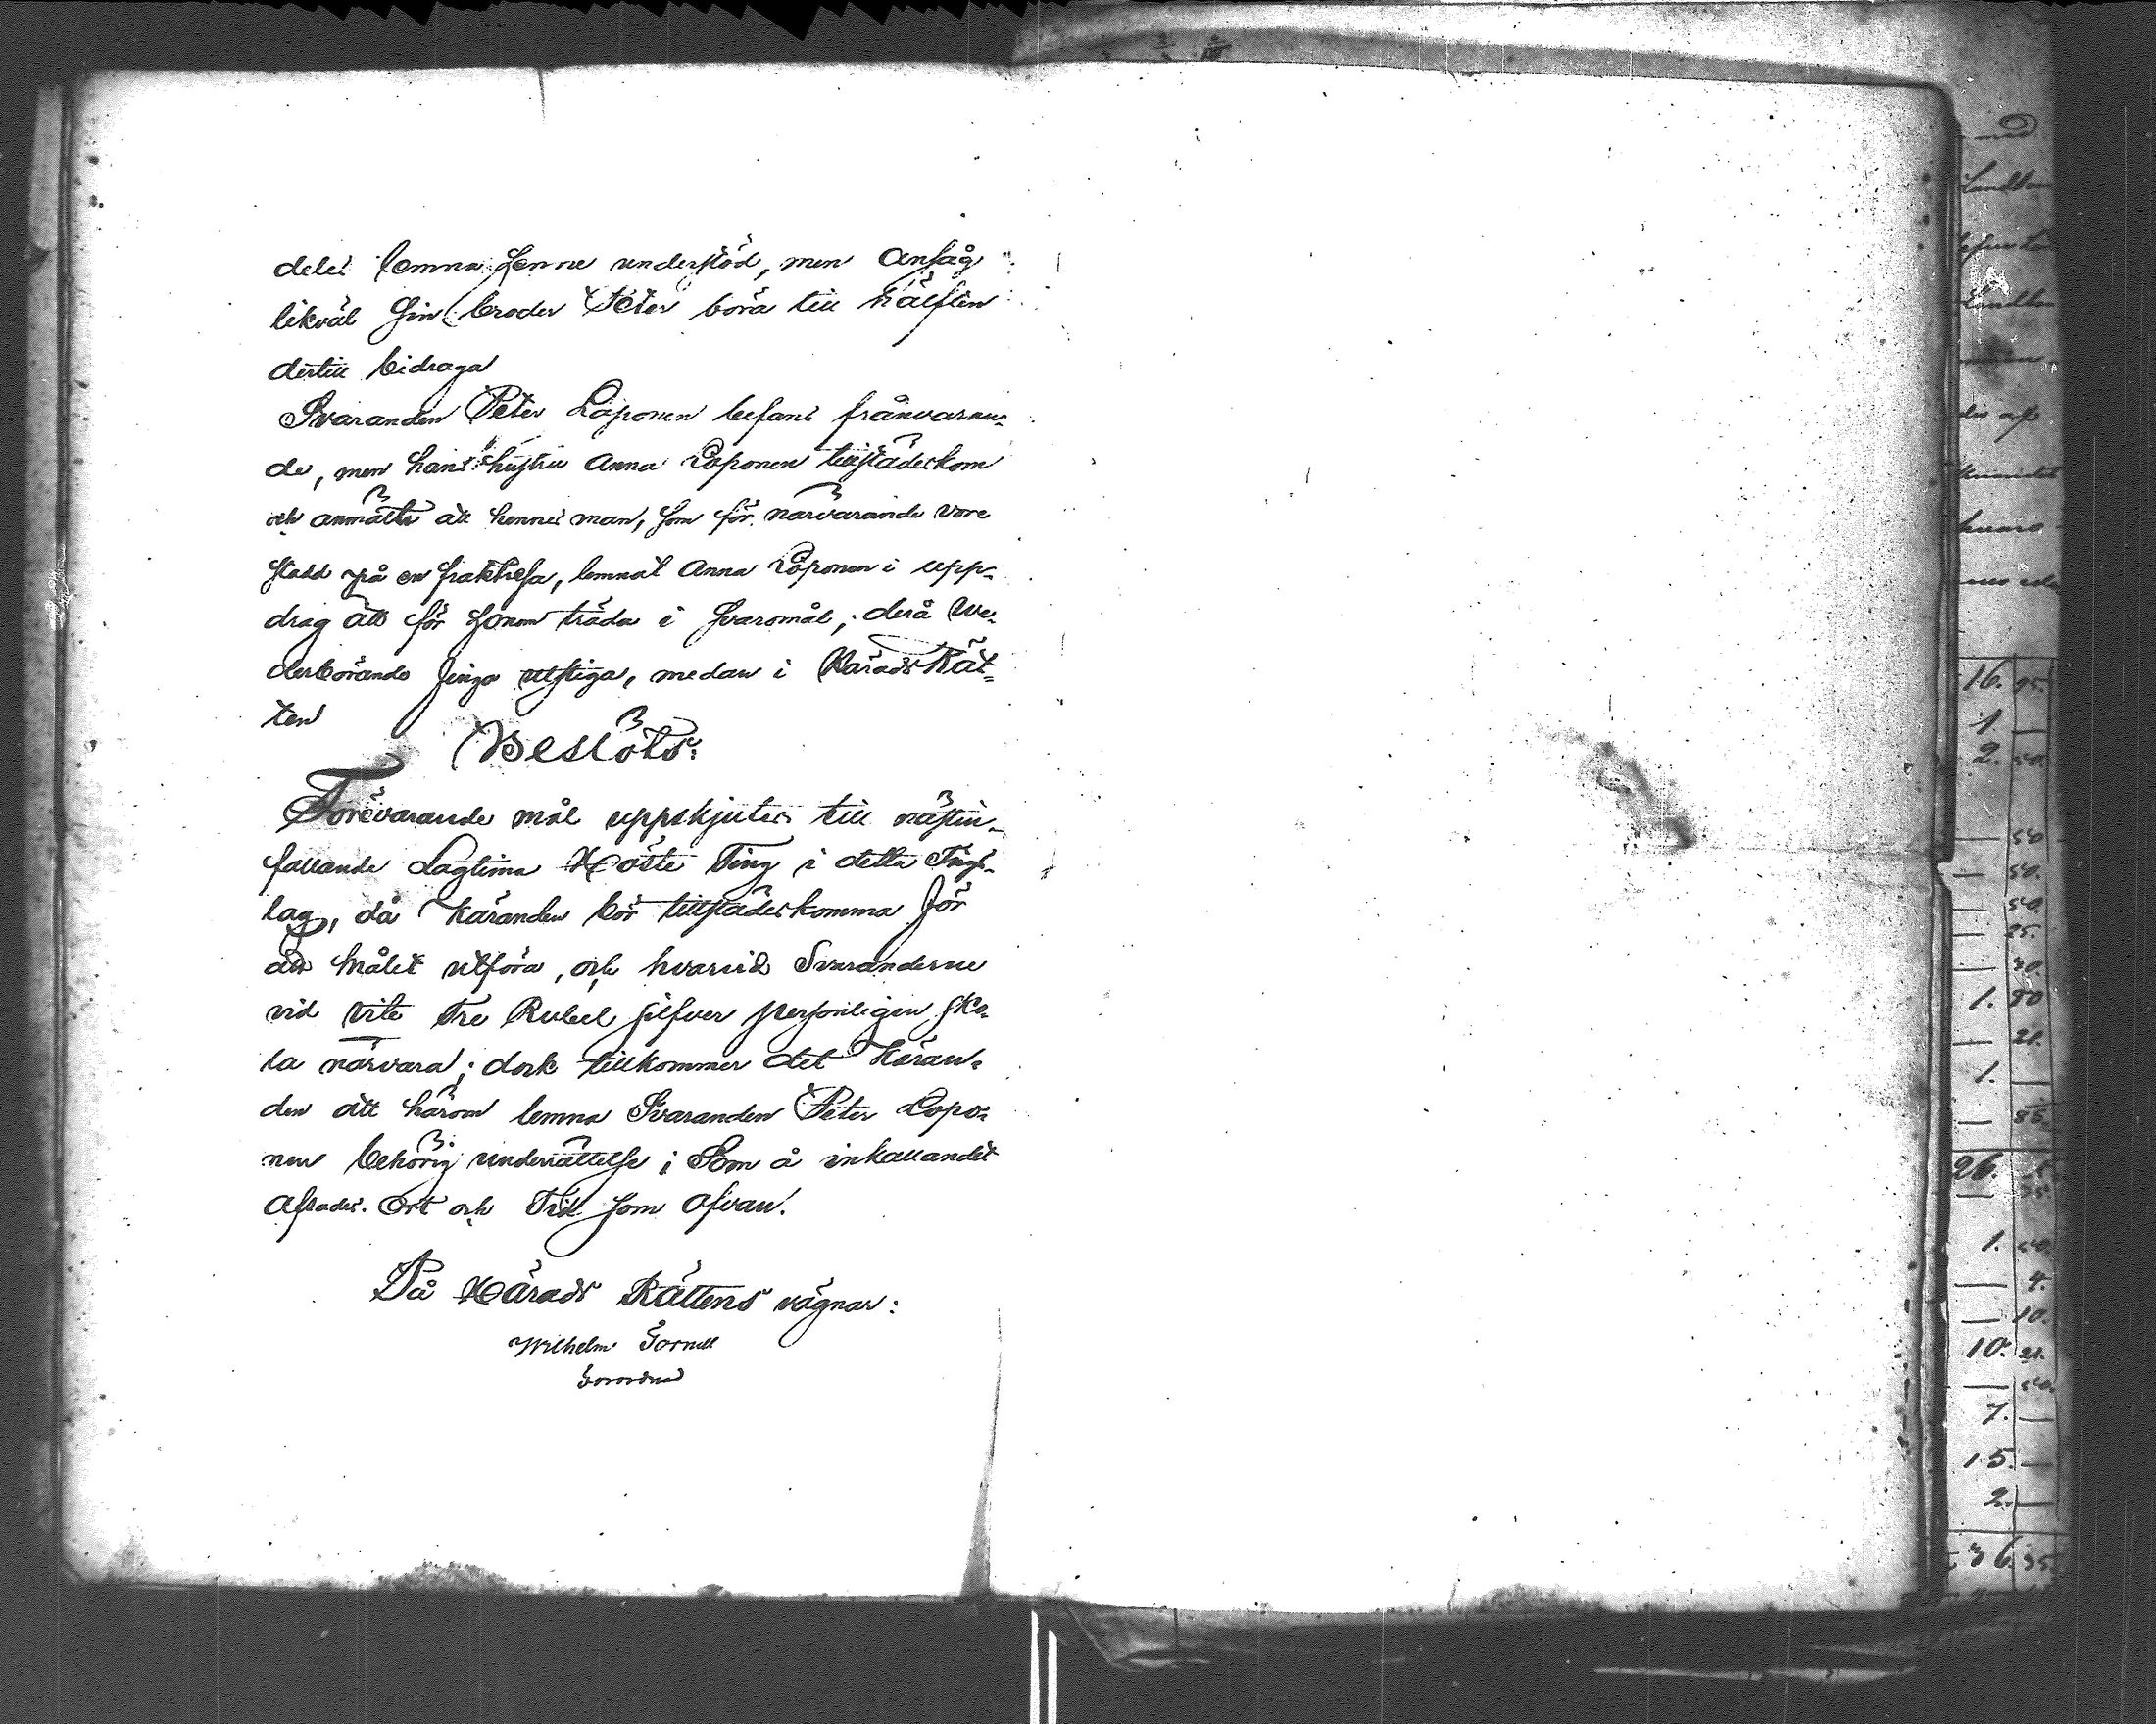 deles lemna henne understöd, men ansåg
likväl sin broder Peter böra till hälften
dertill bidraga
Svaranden Peter Loponen befans frånvaran-
de, men hans hustru Anna Loponen tillstädeskom
och anmälte att hennes man, som för närvarande vore
stadd på en fraktresa, lemnat Anna Loponen i upp-
drag att för honom träda i svaromål; derå We-
derbörande finge utstiga, medan i Härads Rät-
ten
Beslöts:
Förevarande mål uppskjutes till nästin-
fallande Lagtima Höste Ting i detta Tings-
lag, då Käranden bör tillstädeskomma för
att målet utföra, och hvarvid Svaranderne
vid vite Tre Rubel silfver personligen sko-
la närvara; dock tillkommer det Käran-
den att härom lemna Svaranden Peter Lopo-
nen behörig underrättelse; Som å inkallandet
afsades. Ort och Tid som ofvan.
På Härads Rättens vägnar:
Wilhelm
16. 95.
1. —
2. 50.
— 50
— 50.
— 50.
— 25.
— 30.
1. 80
— 21.
1. —
— 85.
26.
1. 50.
— 4.
— 10.
10. 21.
— 50.
7. —
15. —
2. —
36. 35